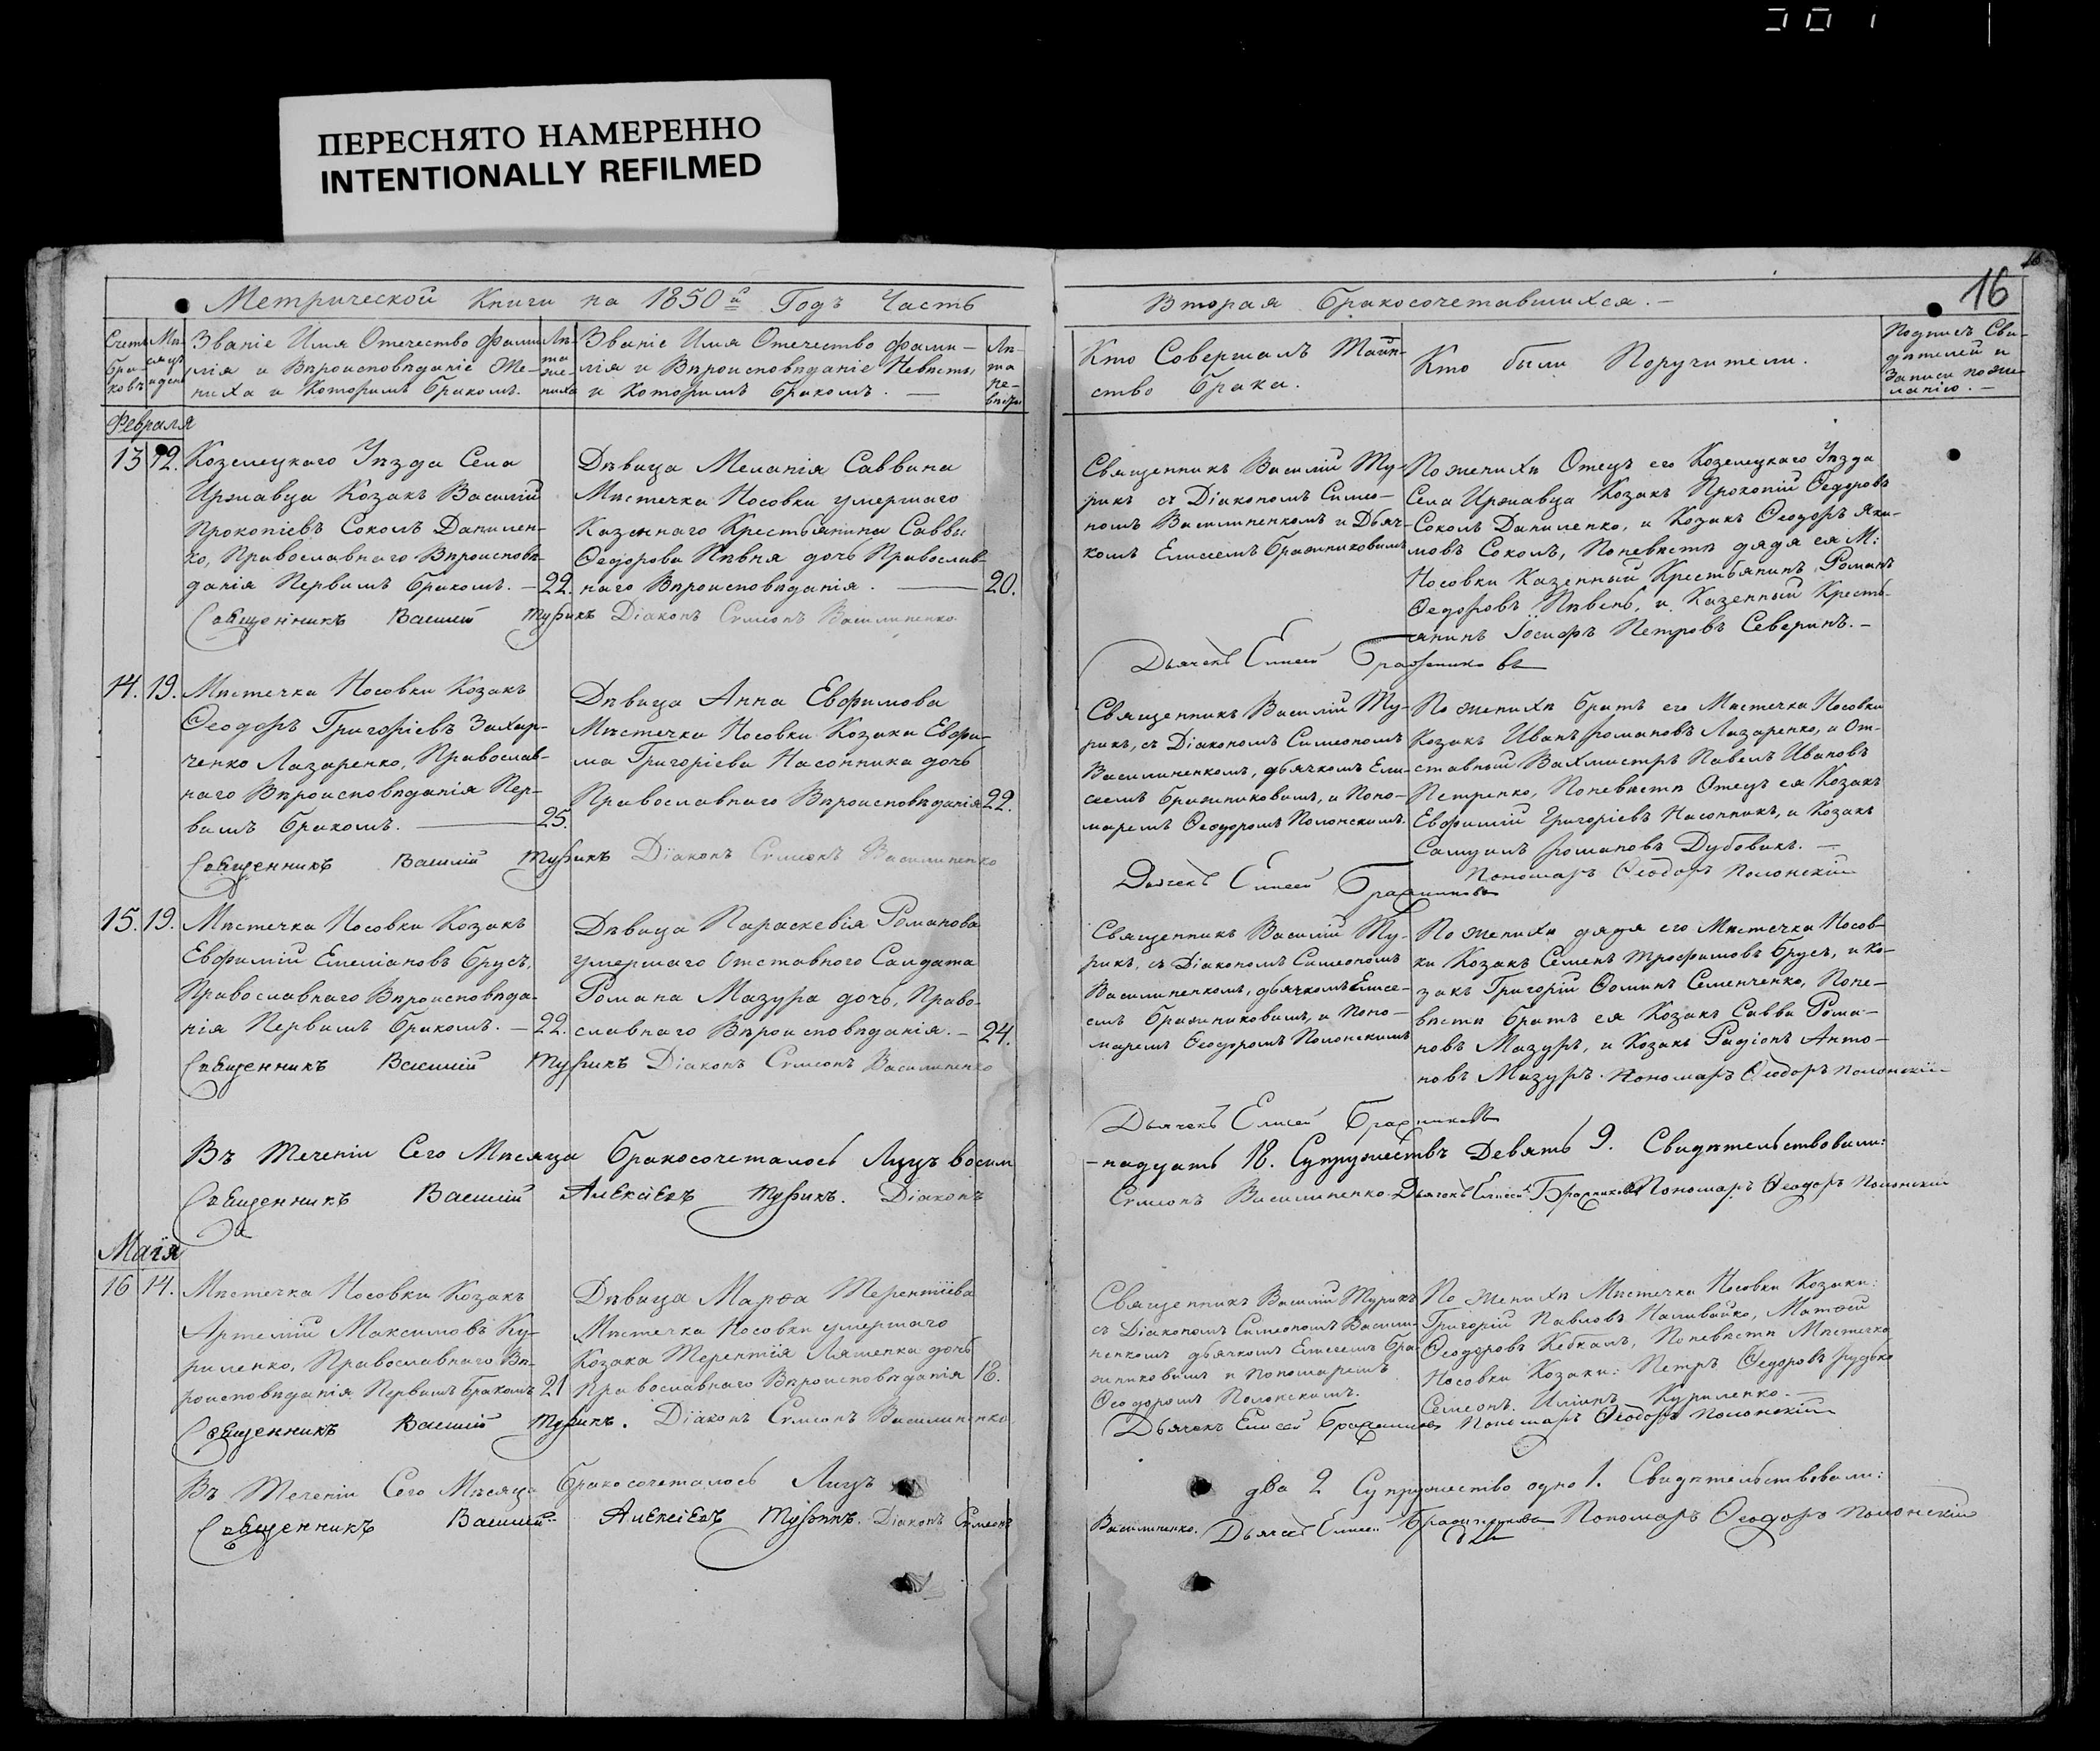 ПЕРЕСНЯТО НАМЕРЕННО
INTENTIONALLY REFILMED
16
Метрической Книги на 1850й Годъ Часть
Вторая бракосочетавшихся.
Счетъ браковъ
Мѣсяцъ и день
Званіе Имя Отечество Фамилія и Вѣроисповѣданіе Же-
ниха и Которымъ бракомъ.
Лѣта жениха
Званіе Имя Отечество фами-
лія и Вѣроисповѣданіе Невѣсты
и Которымъ бракомъ.
Лѣта невѣсты
Кто Совершалъ Таин-
ство брака.
Кто были Поручители.
Подписъ Сви-
дѣтелей и
Записи по же-
ланію.
Февраля
13 12.
Козелецкаго Уѣзда Села
Иржавца Козакъ Василій
Прокопіевъ Соколъ Данилен-
ко, Православнаго Вѣроисповѣ-
данія Первымъ бракомъ. — 22.
Дѣвица Меланія Саввина
Мѣстечка Носовки умершаго
Казеннаго Крестьянина Саввы
Ѳедорова Пѣвня дочь Православ-
наго Вѣроисповѣданія. — 20.
Священникъ Василій Турикъ Діаконъ Симеонъ Василипенко
Священникъ Василій Ту-
рикъ съ Діакономъ Симео-
номъ Василипенкомъ и Дьяч-
комъ Елисеемъ Бражниковымъ
По женихѣ Отецъ его Козелецкаго Уѣзда
Села Иржавца Козакъ Прокопій Ѳедоровъ
Соколъ Даниленко, и Козакъ Ѳеодоръ Яки-
мовъ Соколъ, По невѣстѣ дядя ея М:
Носовки Казенный Крестьянинъ Романъ
Ѳедоровъ Пѣвень, и Казенный Кресть-
янинъ Іосифъ Петровъ Северинъ.
Дьячекъ Елисей Бражниковъ
14. 19.
Мѣстечка Носовки Козакъ
Ѳеодоръ Григоріевъ Захар-
ченко Лазаренко, Православ-
наго Вѣроисповѣданія Пер-
вымъ бракомъ. — 25.
Дѣвица Анна Евфимова
Мѣстечка Носовки Козака Евфи-
ма Григоріева Насонника дочь
Православнаго Вѣроисповѣданія 22.
Священникъ Василій Турикъ Діаконъ Симеонъ Василипенко
Священникъ Василій Ту-
рикъ, съ Діакономъ Симеономъ
Василипенкомъ, дьячкомъ Ели-
сеемъ Бражниковымъ, и Поно-
маремъ Ѳеодоромъ Полонскимъ.
По женихѣ братъ его Мѣстечка Носовки
Козакъ Иванъ Романовъ Лазаренко, и От-
ставный Вахмистръ Павелъ Ивановъ
Петренко, По невѣстѣ Отецъ ея Козакъ
Евфимій Григоріевъ Насонникъ, и Козакъ
Самуилъ Романовъ Дубовикъ.
Дьячекъ Елисей Бражниковъ
Пономарь Ѳеодоръ Полонскій
15. 19.
Мѣстечка Носовки Козакъ
Евфимій Емеліановъ Брусъ,
Православнаго Вѣроисповѣда-
нія Первымъ бракомъ. — 22.
Дѣвица Параскевія Романова
умершаго Отставного Салдата
Романа Мазура дочь, Право-
славнаго Вѣроисповѣданія. — 24.
Священникъ Василій Турикъ Діаконъ Симеонъ Василипенко
Священникъ Василій Ту-
рикъ, съ Діакономъ Симеономъ
Василипенкомъ, дьячкомъ Елисе-
емъ Бражниковымъ, и Поно-
маремъ Ѳеодоромъ Полонскимъ
По женихѣ дядя его Мѣстечка Носов-
ки Козакъ Семенъ Трофимовъ Брусъ, и Ко-
закъ Григорій Ѳоминъ Семенченко, По не-
вѣстѣ братъ ея Козакъ Савва Рома-
новъ Мазуръ, и Козакъ Радіонъ Анто-
новъ Мазуръ. Пономарь Ѳеодоръ Полонскій
Дьячекъ Елисей Бражниковъ
Въ теченіи Сего Мѣсяца бракосочеталось Лицъ восем
-надцать 18. Супружествъ Девять 9. Свидѣтельствовали:
Священникъ Василій Алексіевъ Турикъ. Діаконъ
Симеонъ Василипенко Дьячекъ Елисей Бражниковъ Пономарь Ѳеодоръ Полонскій
Маія
16 14.
Мѣстечка Носовки Козакъ
Артемій Максимовъ Ку-
риленко, Православнаго Вѣ-
роисповѣданія Первымъ бракомъ 21
Дѣвица Марѳа Терентіева
Мѣстечка Носовки умершаго
Козака Терентія Ляшенка дочь
Православнаго Вѣроисповѣданія 18.
Священникъ Василій Турикъ. Діаконъ Симеонъ Василипенко
Священникъ Василій Турикъ
съ Діакономъ Симеономъ Васили-
пенкомъ дьячкомъ Елисеемъ Бра-
жниковымъ и пономаремъ
Ѳеодоромъ Полонскимъ.
По женихѣ Мѣстечка Носовки Козаки:
Григорій Павловъ Наливайко, Матѳей
Ѳеодоровъ Кебкалъ, По невѣстѣ Мѣстечка
Носовки Козаки: Петръ Ѳедоровъ Рудько
Семеонъ Илiинъ Куриленко.
Дьячекъ Елисей Бражниковъ Пономарь Ѳеодоръ Полонскій
Въ Теченіи Сего Мѣсяца бракосочеталось Лицъ
два 2 Супружество одно 1. Свидѣтельствовали:
Священникъ Василій Алексіевъ Турикъ. Діаконъ Симеонъ
Василипенко. Дьячекъ Елисей Бражниковъ Пономарь Ѳеодоръ Полонскій